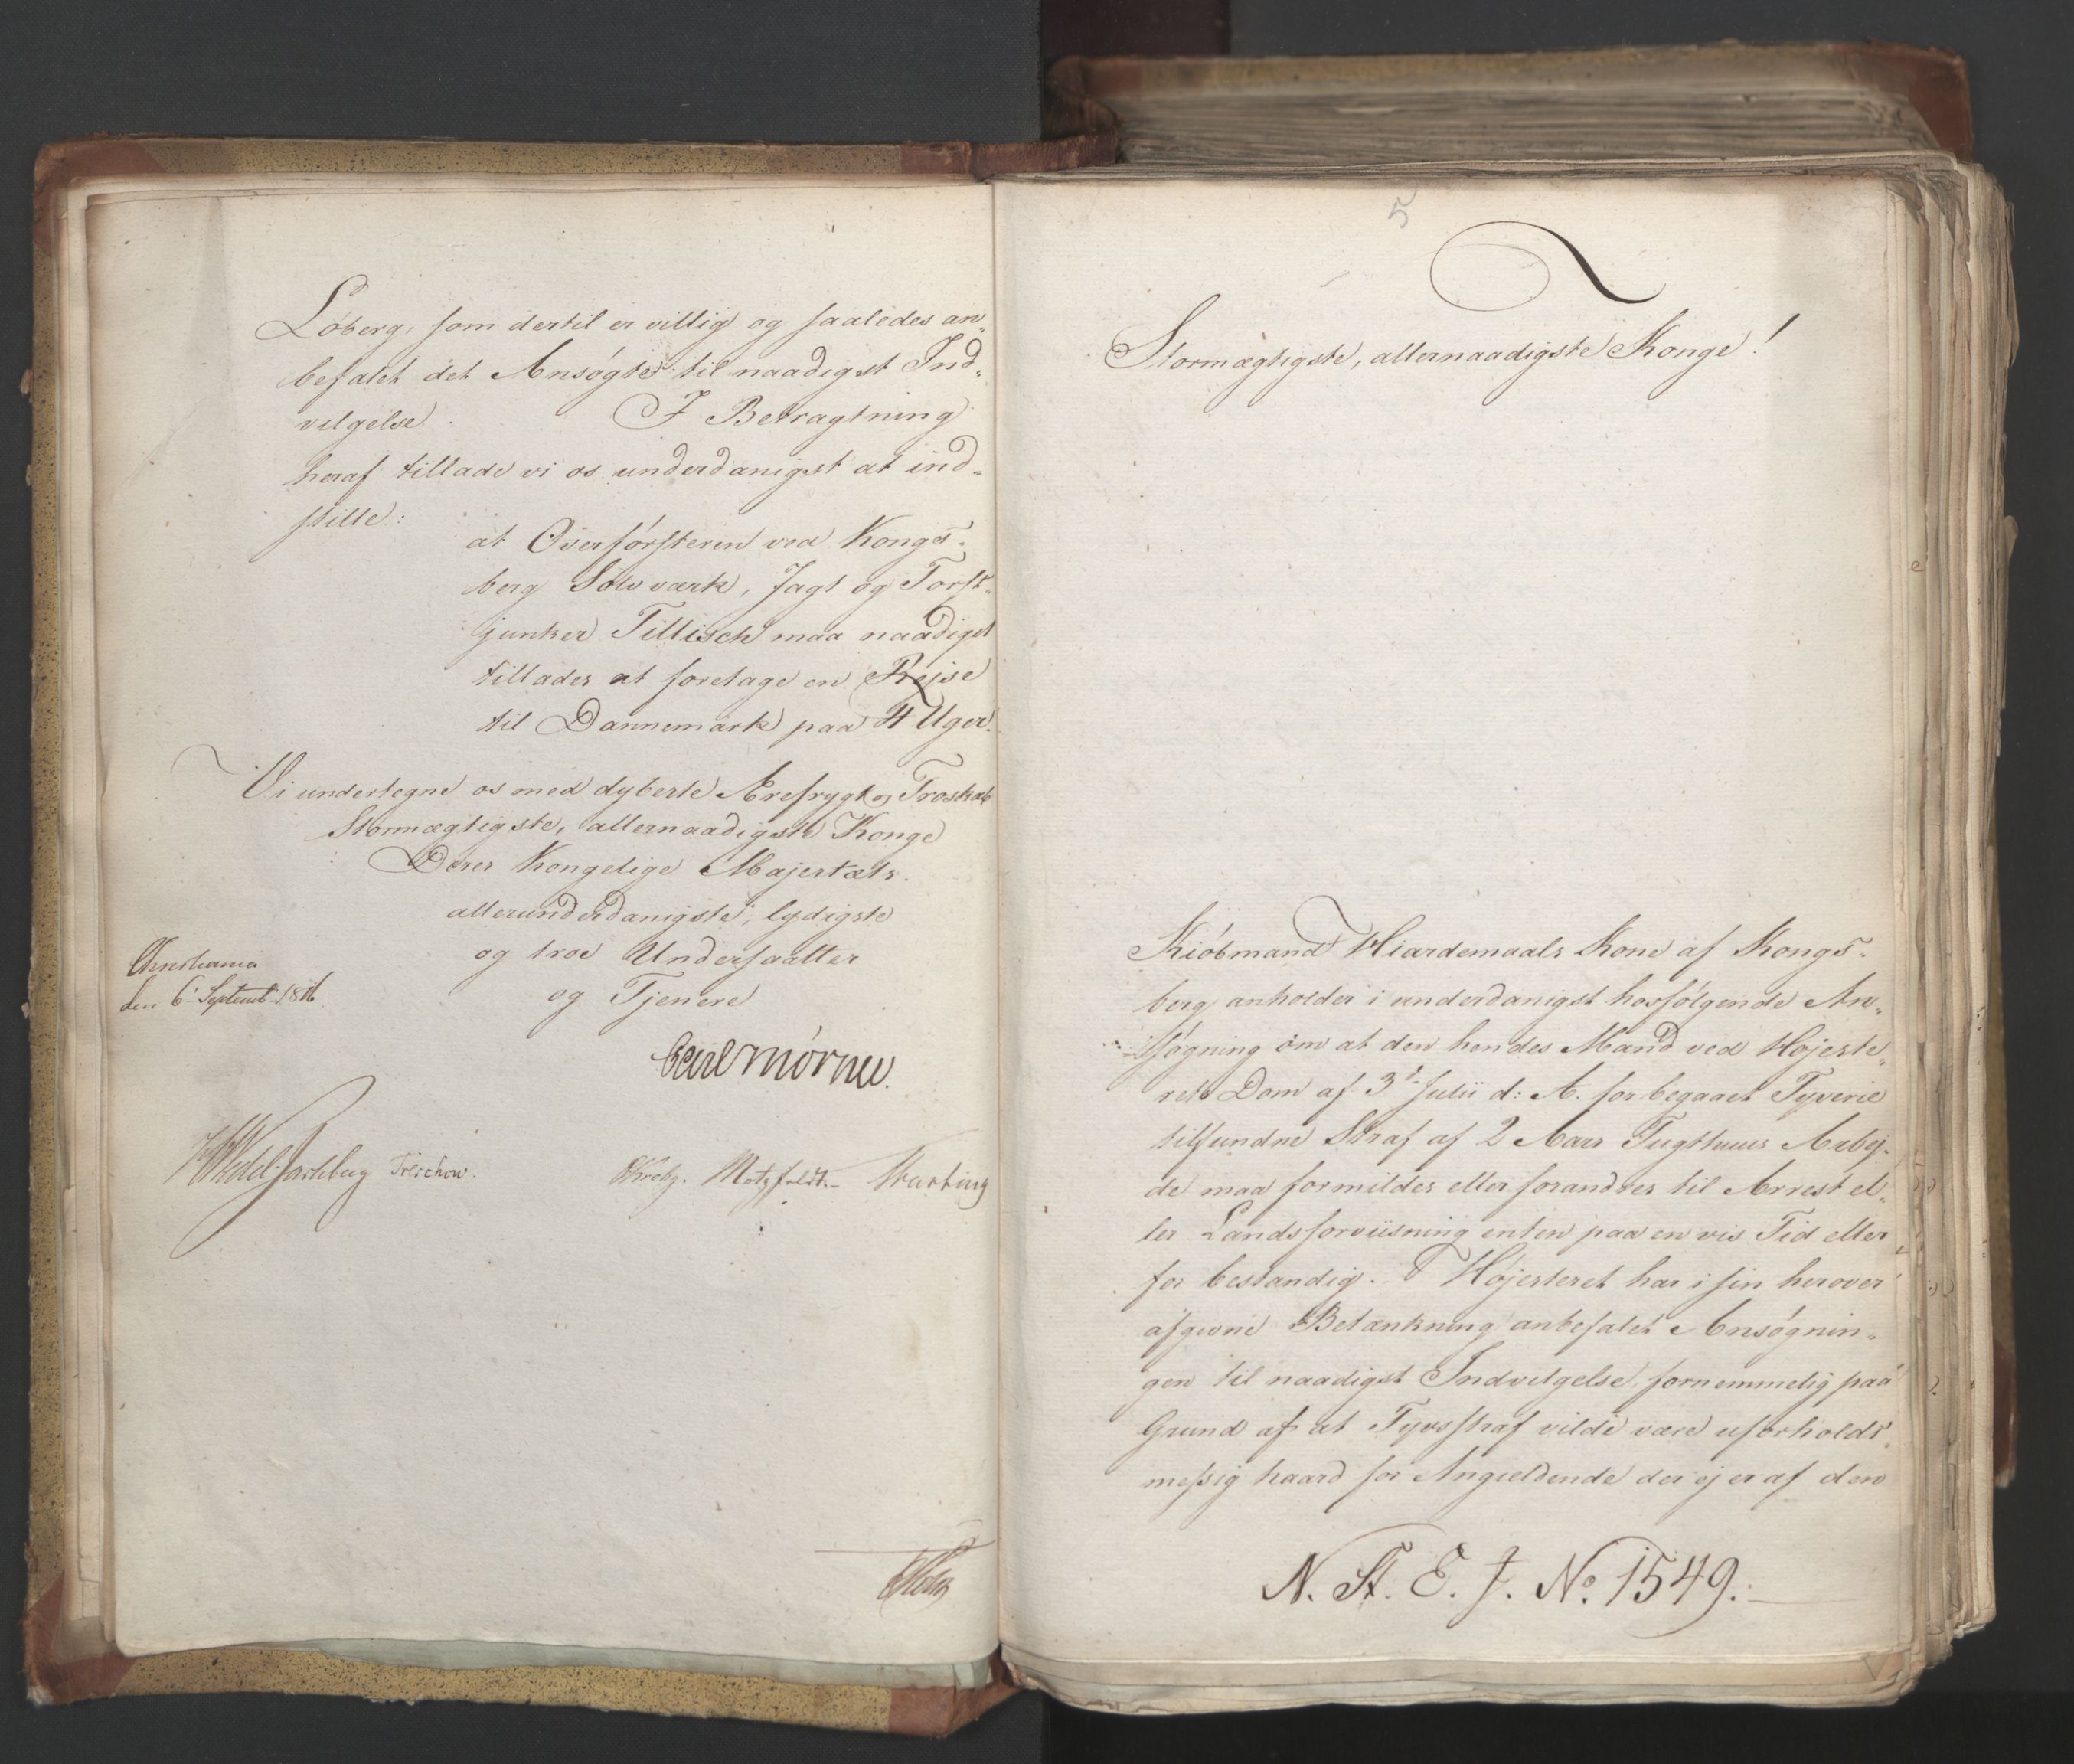 Løberg, som dertil er villig og saaledes an„
befalet det Ansøgte til naadigst Ind„
vilgelse. I Betragtning
heraf tillade vi os underdanigst at ind„
stille:
at Overførsteren ved Kongs„
berg Sølvværk, Jagt og Forst„
junker Tillisch maa naadigst
tillades at foretage en Rejse
til Dannemark paa 4 Uger.
Vi undertegne os med dybeste Ærefrygt og Troskab
Stormægtigste, allernaadigste Konge
Deres Kongelige Majestæts
allerunderdanigste, lydigste
og troe Undersaatter
og Tjenere
Christiania
den 6' Septembr 1816.
Carl Mörner.
HWedel Jarlsberg Treschow. Krebs. Motzfeldt. Thaarup
Holst
5
Stormægtigste, allernaadigste Konge!
Kiøbmand Hiardemaals Kone af Kongs„
berg anholder i underdanigst hosfølgende An„
søgning om at den hendes Mand ved Højeste„
rets Dom af 3die Julii d: A. for begaaet Tyverie
tilfundne Straf af 2 Aars Tugthuus Arbej„
de maa formildes eller forandres til Arrest el„
ler Landsforviisning enten paa en vis Tid eller
for bestandig. Højesteret har i sin herover
afgivne Betænkning anbefalet Ansøgnin„
gen til naadigst Indvilgelse, fornemmelig paa
Grund af at Tyvsstraf vilde være uforholds„
messig haard for Angieldende der ej er af den
N. St. E. J. No. 1549.